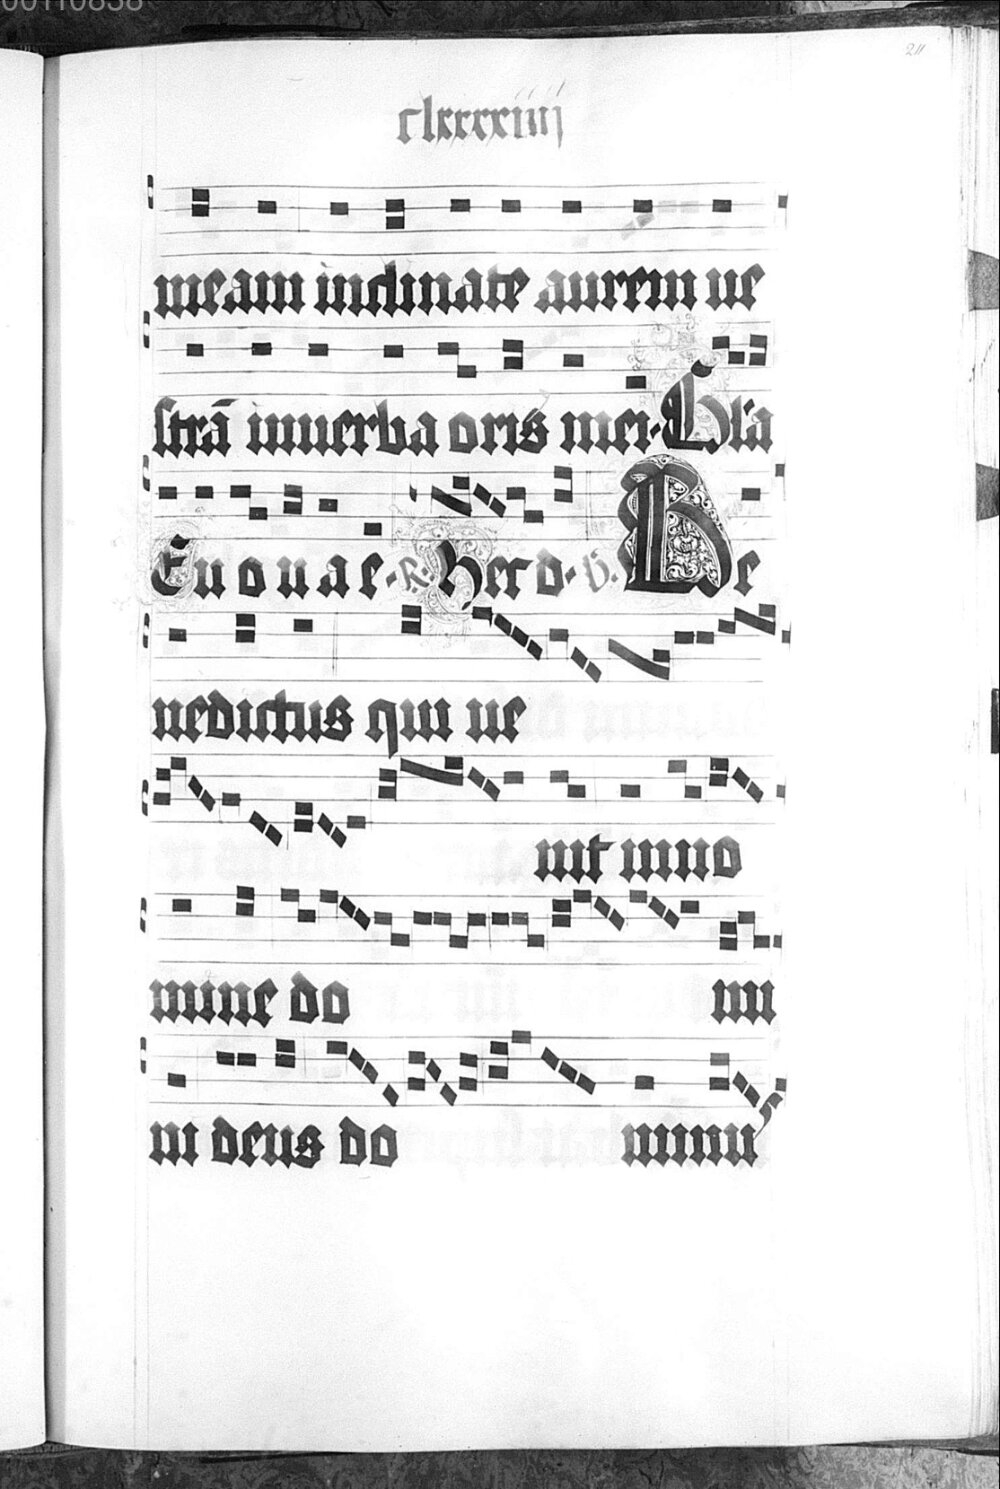 00110838
211
clxxxxiiij
meam inclinate aurem ue
strā inuerba oris mei. Gl'a
Euouae. R: Uerō. V. Be
nedictus qui ue
nit inno
mine do mi
ni deus do minu